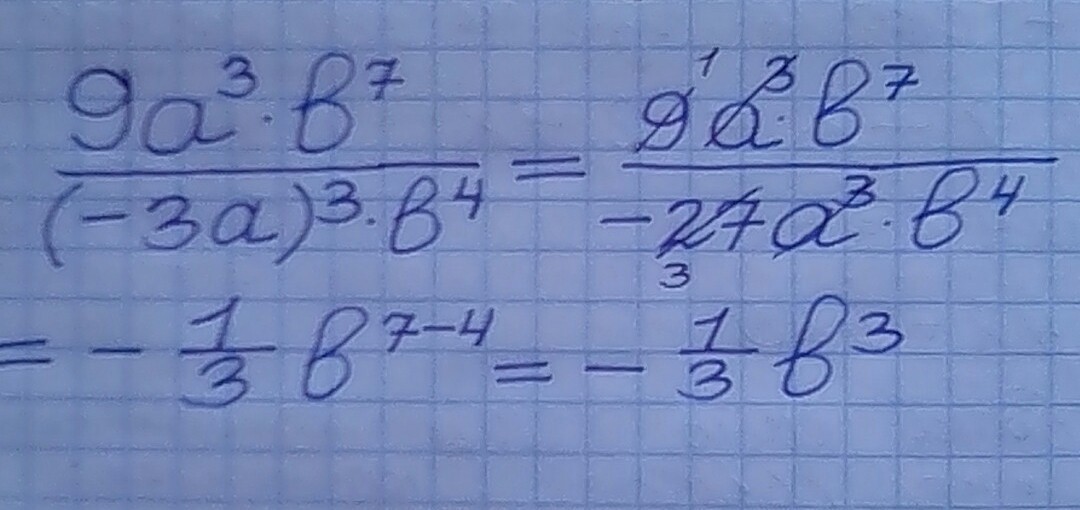 9a³·b⁷/(-3a)³·b⁴ = 9¹a³·b⁷/-27₃a³·b⁴
= - 1/3 b⁷⁻⁴ = - 1/3 b³